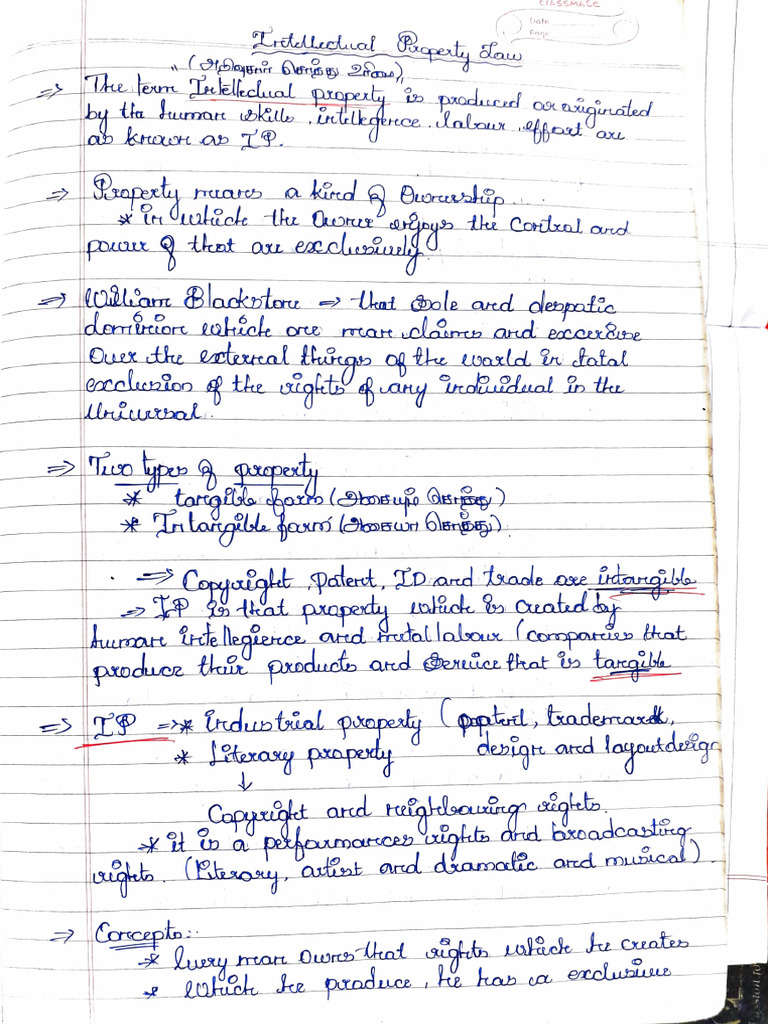 CLASSMATE
Date
Page
Intellectual Property Law
"(அறிவுசார் சொத்து உரிமை)"
=> The term Intellectual property is produced or originated
by the human skills, intellegence, labour, effort are
as known as IP.
=> Property means a kind of Ownership....
* in which the Owner enjoys the control and
power of that are excclusively.
=> William Blackstone => that sole and despatic
dominion which one man claims and excercise
Over the external things of the world in total
excclusion of the rights of any individual in the
Universal.
=> Two types of property
* tangible form (அசையும் சொத்து)
* Intangible form (அசையா சொத்து).
=> Copyright, Patent, ID and trade are intangible
=> IP is that property which is created by
human intellegience and mutal labour (companies that
produce their products and Service that is tangible
=> IP => * industrial property (patent, trademark,
* Literary property design and layout design
↓
Copyright and neighbouring rights.
* it is a performances rights and broadcasting
rights. (Literary, artist and dramatic and musical).
=> Concepts:-
* Every man owns that rights which he creates
* Which he produce, he has a exclusive